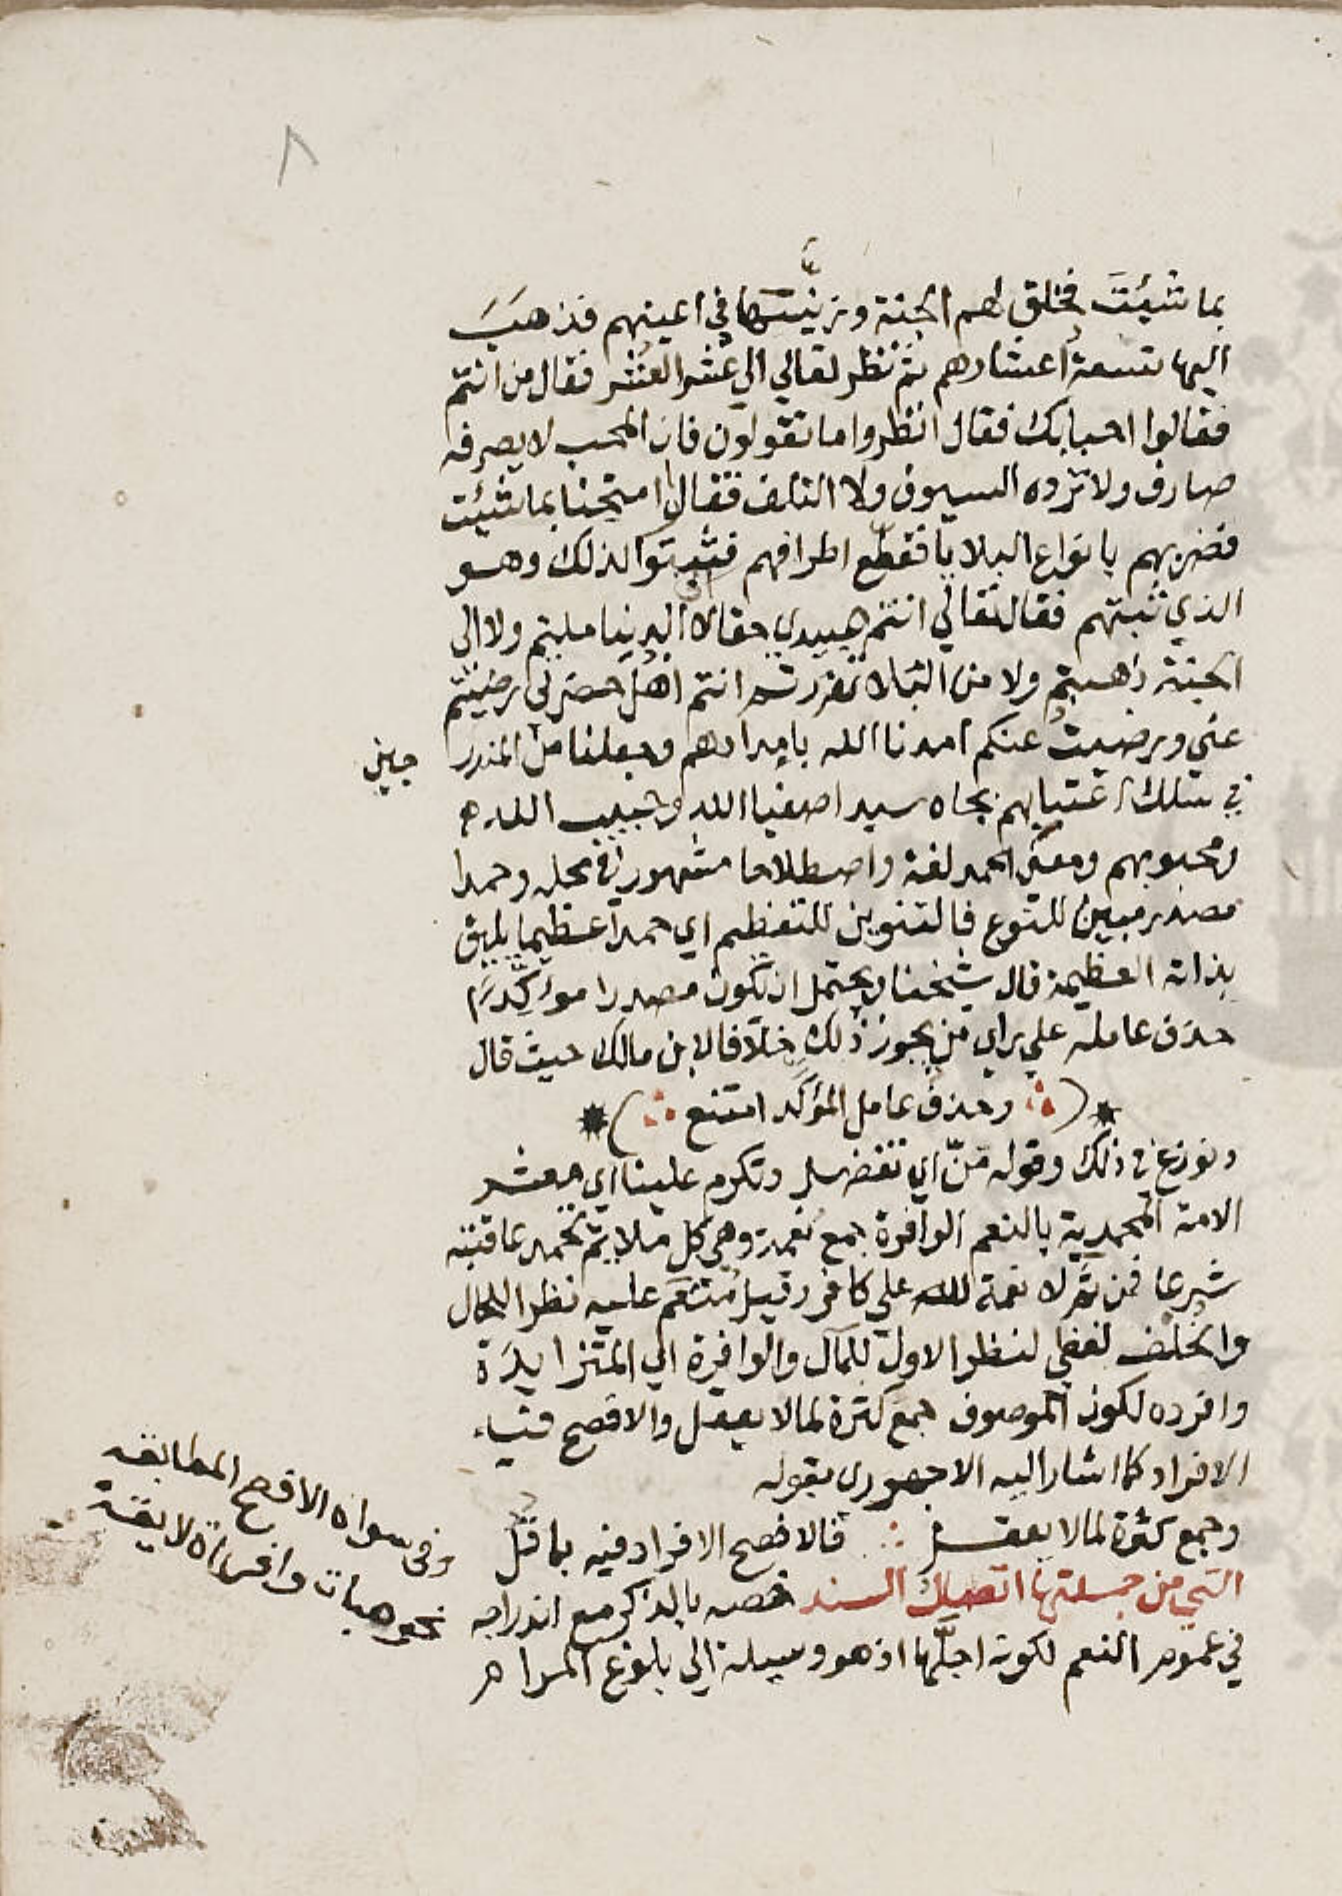 ٨
بما شئتَ فخلق لهم الجنة وزينتها في اعينهم فذهبَ
اليها تسعة اعشارهم ثم نظر تعالي الي عشر العشر فقال من انتم
فقالوا احبابك فقال انظروا ما تقولون فان المحب لا يصرفه
صارف ولا ترده السيوف ولا التلف فقالوا امتحنا بما شئت
فضربهم بانواع البلايا فقطّع اطرافهم فثبتوا لذلك وهو
الذي ثبتهم فقال تعالي انتم عبيدي حقا لا الدنيا ملتم ولا الى
الجنة ذهبتم ولا من البلا تفررتم انتم اهل حضرتي رضيتم
عني ورضيت عنكم امدنا الله بامدادهم وجعلنا من المندر
جين
في سلك اعتابهم بجاه سيد اصفيا الله وحبيب الله
ومحبوبهم ومعني الحمد لغة واصطلاحا مشهور في محله وحمدا
مصدر مبين للنوع فالتنوين للتعظيم اي حمدا عظيما يليق
بذاته العظيمة قال شيخنا ويحتمل ان يكون مصدرا مؤكدا
حذف عامله علي راي من يجوز ذلك خلافا لابن مالك حيث قال
وحذف عامل المؤكد امتنع
ونوزع في ذلك وقوله منّ اي تفضل وتكرم علينا اي معشر
الامة المحمدية بالنعم الوافرة جمع نعمة وهي كل ملايم تحمد عاقبته
شرعا فمن ثَمَّ لا نعمة لله علي كافر وقيل منعَم عليه نظرا للحال
والخلف لفظي لنظر الاول للمآل والوافرة اي المتزايدة
وافرده لكون الموصوف جمع كثرة لما لا يعقل والافصح فيه
الافراد كما اشار اليه الاجهوري بقوله
وجمع كثرة لما لا يعقل ∴ فالافصح الافراد فيه يا فل
وفي سواه الافصح المطابقه
نحو هبات وافرات لايقة
التي من جملتها اتصال السند خصه بالذكر مع اندراجه
في عموم النعم لكونه اجلّها اذ هو وسيلة الي بلوغ المرام